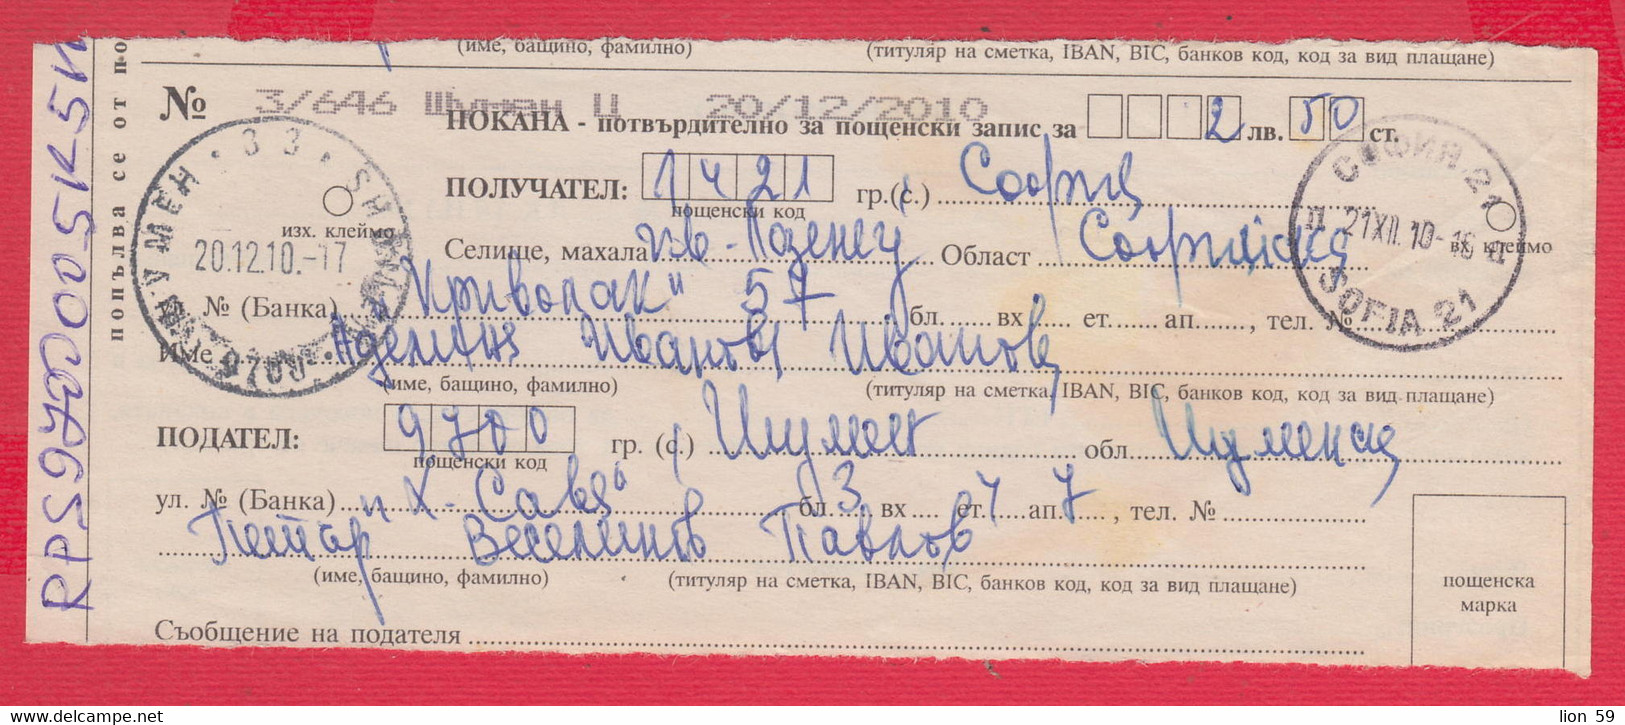 (име, бащино, фамилно) (титуляр на сметка, IBAN, BIC, банков код, код за вид плащане)
№ 3/646 Шумен Ц 20/12/2010
ПОКАНА - потвърдително за пощенски запис за 2 лв. 50 ст.
ПОЛУЧАТЕЛ: 1421 гр.(с.) София
пощенски код
изх. клеймо
Селище, махала кв. Лозенец Област Софийска
вх. клеймо
№ (Банка) "Криволак" 57 бл. вх. ет. ап. , тел. №
Име Аделина Иванова Иванова
(име, бащино, фамилно) (титуляр на сметка, IBAN, BIC, банков код, код за вид плащане)
ПОДАТЕЛ: 9700 гр. (с.) Шумен обл Шуменска
пощенски код
ул. № (Банка) "Х. Сава" бл 3 вх ет. 4 ап. 7 , тел. №
Петър Веселинов Павлов
(име, бащино, фамилно) (титуляр на сметка, IBAN, BIC, банков код, код за вид плащане)
пощенска
марка
Съобщение на подателя
попълва се от по
RPS97000
ШУМЕН · 33 · SHUMEN
20.12.10.-17
9700
СОФИЯ 21
21XII.10-16
SOFIA 21
lion 59